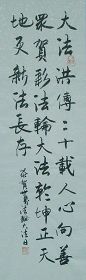 大法洪傳二十載人心向善
眾賀彩法輪大法乾坤正天
地更新法長存
恭賀世界法輪大法日